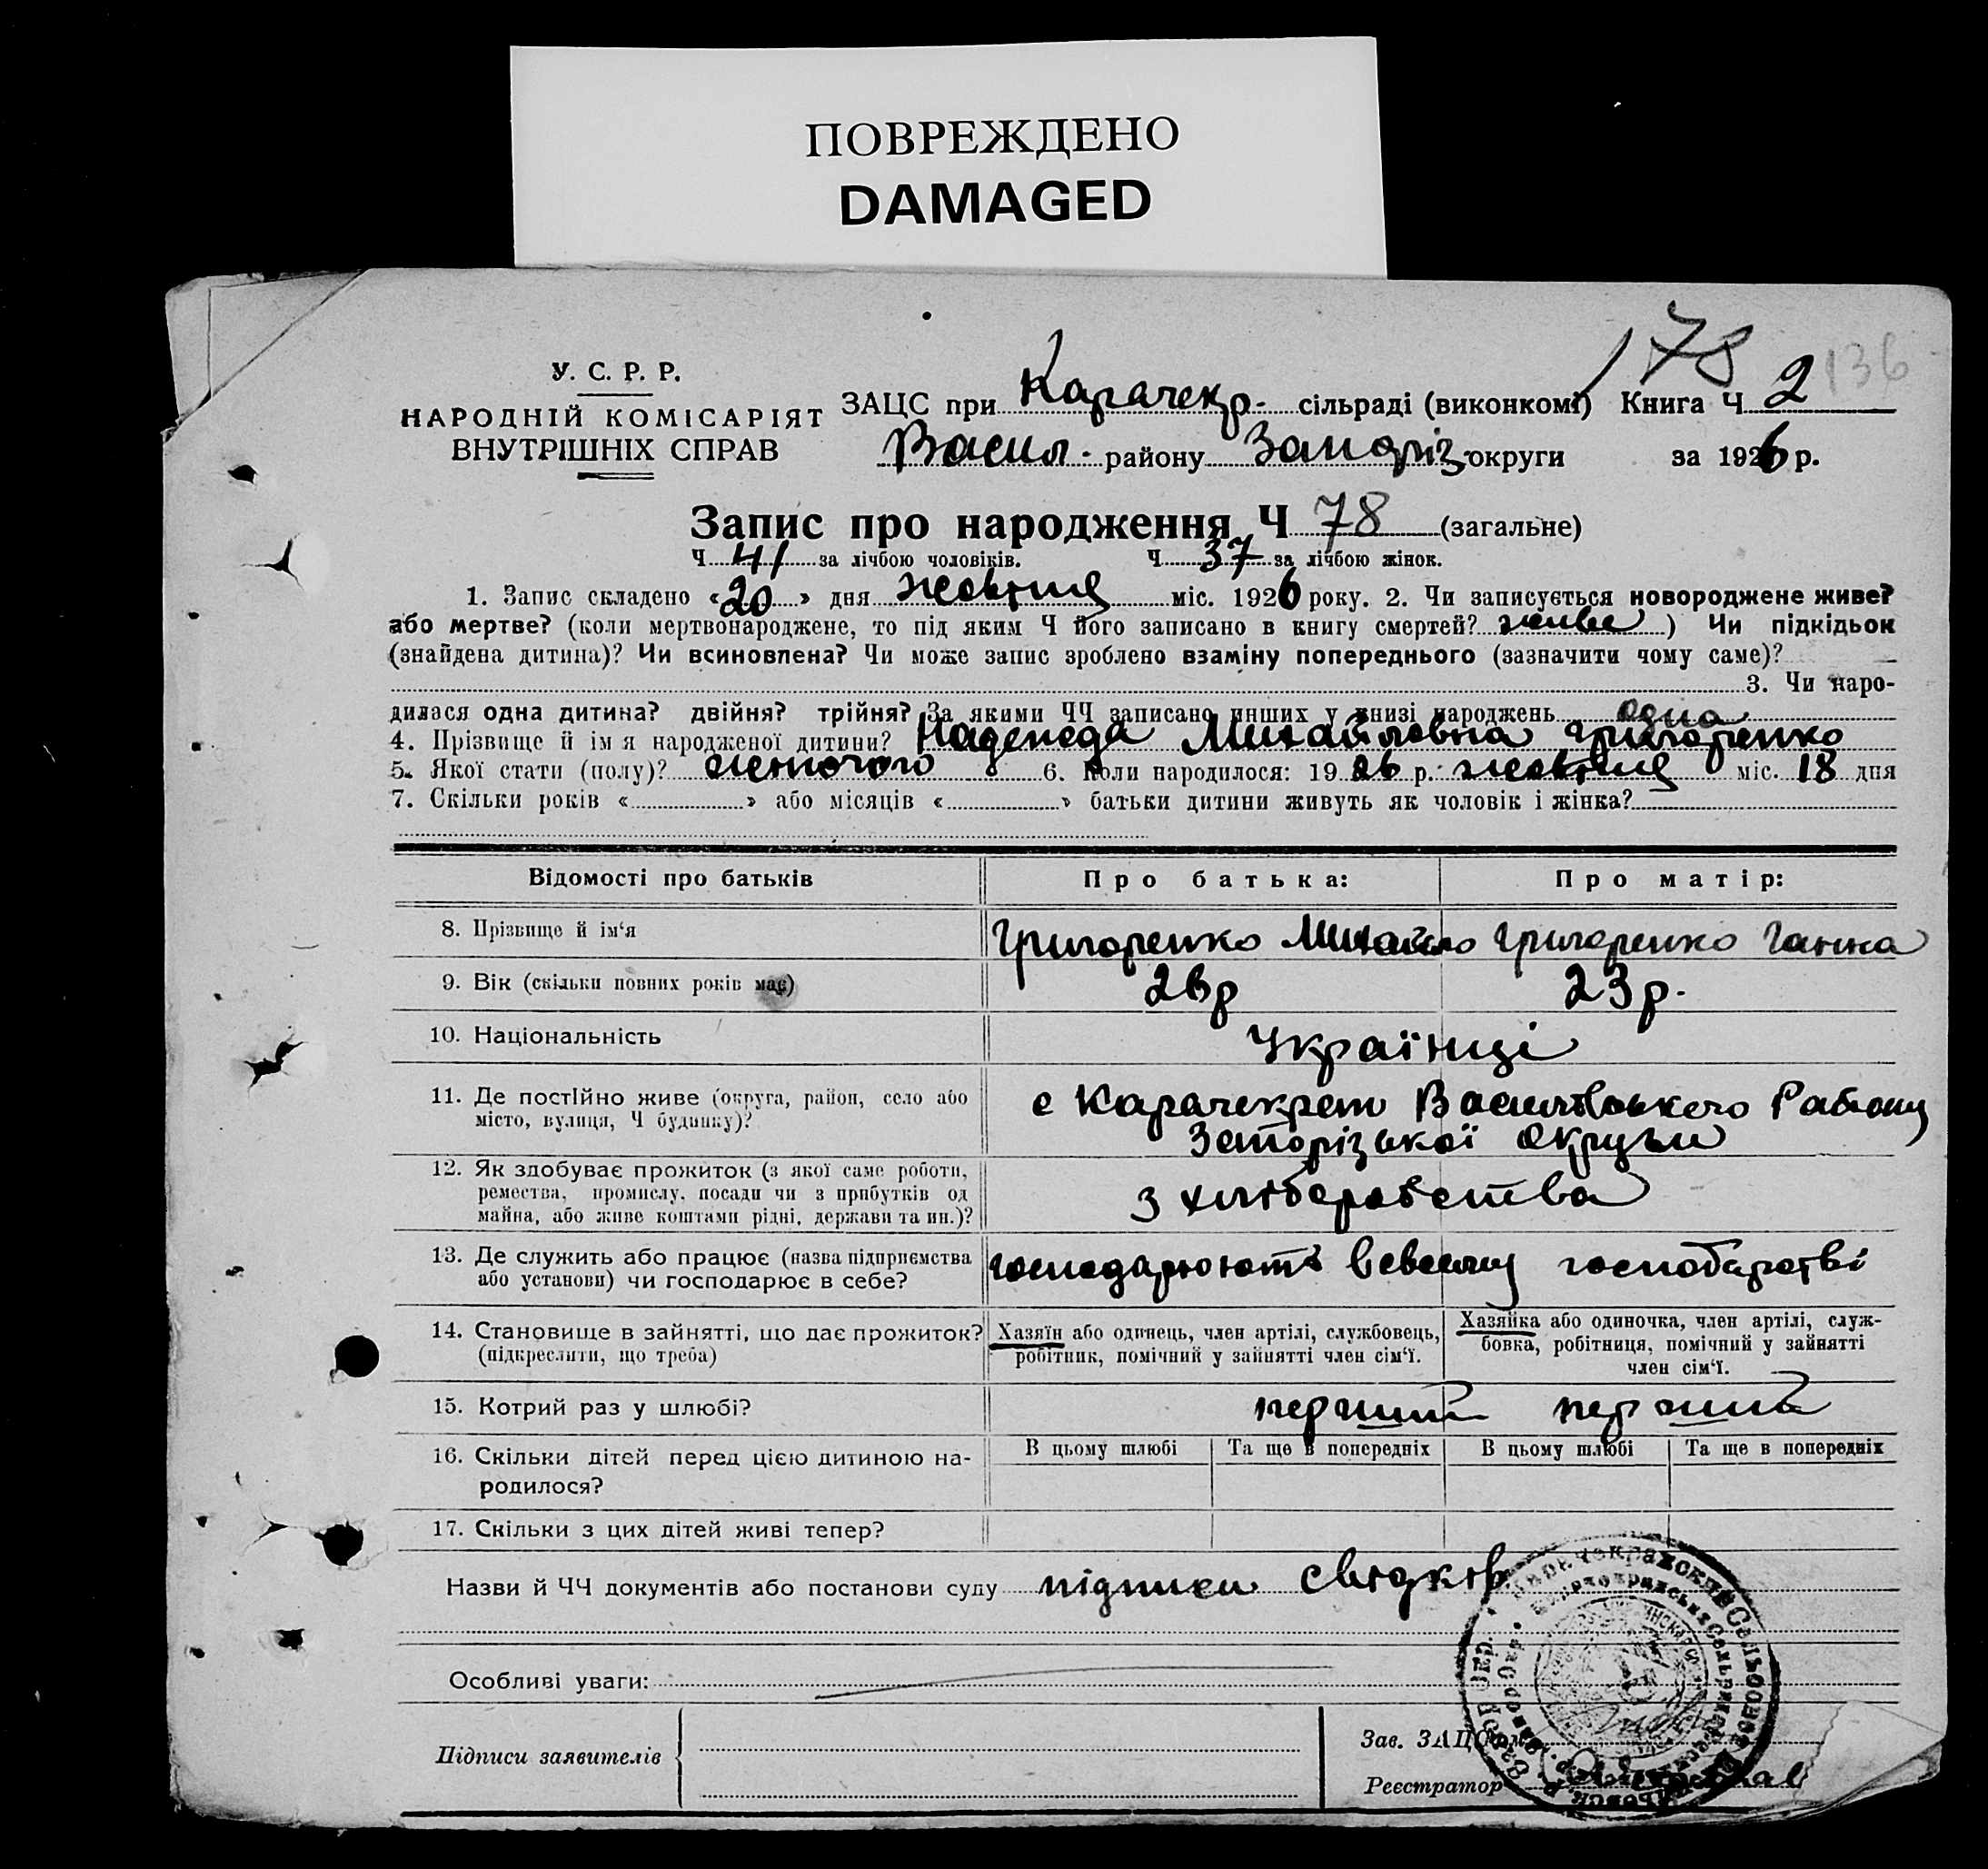 ПОВРЕЖДЕНО
DAMAGED
178 136
У. С. Р. Р.
НАРОДНІЙ КОМІСАРІЯТ
ВНУТРІШНІХ СПРАВ
ЗАЦС при Карачекр. сільраді (виконкомі) Книга Ч 2
Васил. району Запоріз округи за 1926 р.
Запис про народження Ч 78 (загальне)
Ч 41 за лічбою чоловіків. Ч 37 за лічбою жінок.
1. Запис складено «20» дня жовтня міс. 1926 року. 2. Чи записується новороджене живе?
або мертве? (коли мертвонароджене, то під яким Ч його записано в книгу смертей? живе) Чи підкідьок
(знайдена дитина)? Чи всиновлена? Чи може запис зроблено взаміну попереднього (зазначити чому саме)?
3. Чи наро-
дилася одна дитина? двійня? трійня? За якими ЧЧ записано инших у книзі народжень одна
4. Прізвище й ім я народженої дитини? Надежда Михайловна Григоренко
5. Якої стати (полу)? жіночого 6. Коли народилося: 1926 р. жовтня міс. 18 дня
7. Скільки років « » або місяців « » батьки дитини живуть як чоловік і жінка?
Відомості про батьків Про батька: Про матір:
8. Прізвище й ім‘я Григоренко Михайло Григоренко Ганна
9. Вік (скільки повних років має) 26р 23р.
10. Національність Українці
11. Де постійно живе (округа, район, село або
місто, вулиця, Ч будинку)?
с Карачекрак Василівського Району
Запорізької округи
12. Як здобуває прожиток (з якої саме роботи,
ремества, промислу, посади чи з прибутків од
майна, або живе коштами рідні, держави та ин.)?
з хліборобства
13. Де служить або працює (назва підприємства
або установи) чи господарює в себе?
господарюють в своєму господарстві
14. Становище в зайнятті, що дає прожиток?
(підкреслити, що треба)
Хазяїн або одинець, член артілі, службовець,
робітник, помічний у зайнятті член сім‘ї.
Хазяйка або одиночка, член артілі, служ-
бовка, робітниця, помічний у зайнятті
член сім‘ї.
15. Котрий раз у шлюбі? перший перший
16. Скільки дітей перед цією дитиною на-
родилося?
В цьому шлюбі Та ще в попередніх В цьому шлюбі Та ще в попередніх
17. Скільки з цих дітей живі тепер?
Назви й ЧЧ документів або постанови суду підписи свідків
Особливі уваги:
Підписи заявителів
Зав. ЗАЦСом
Реєстратор